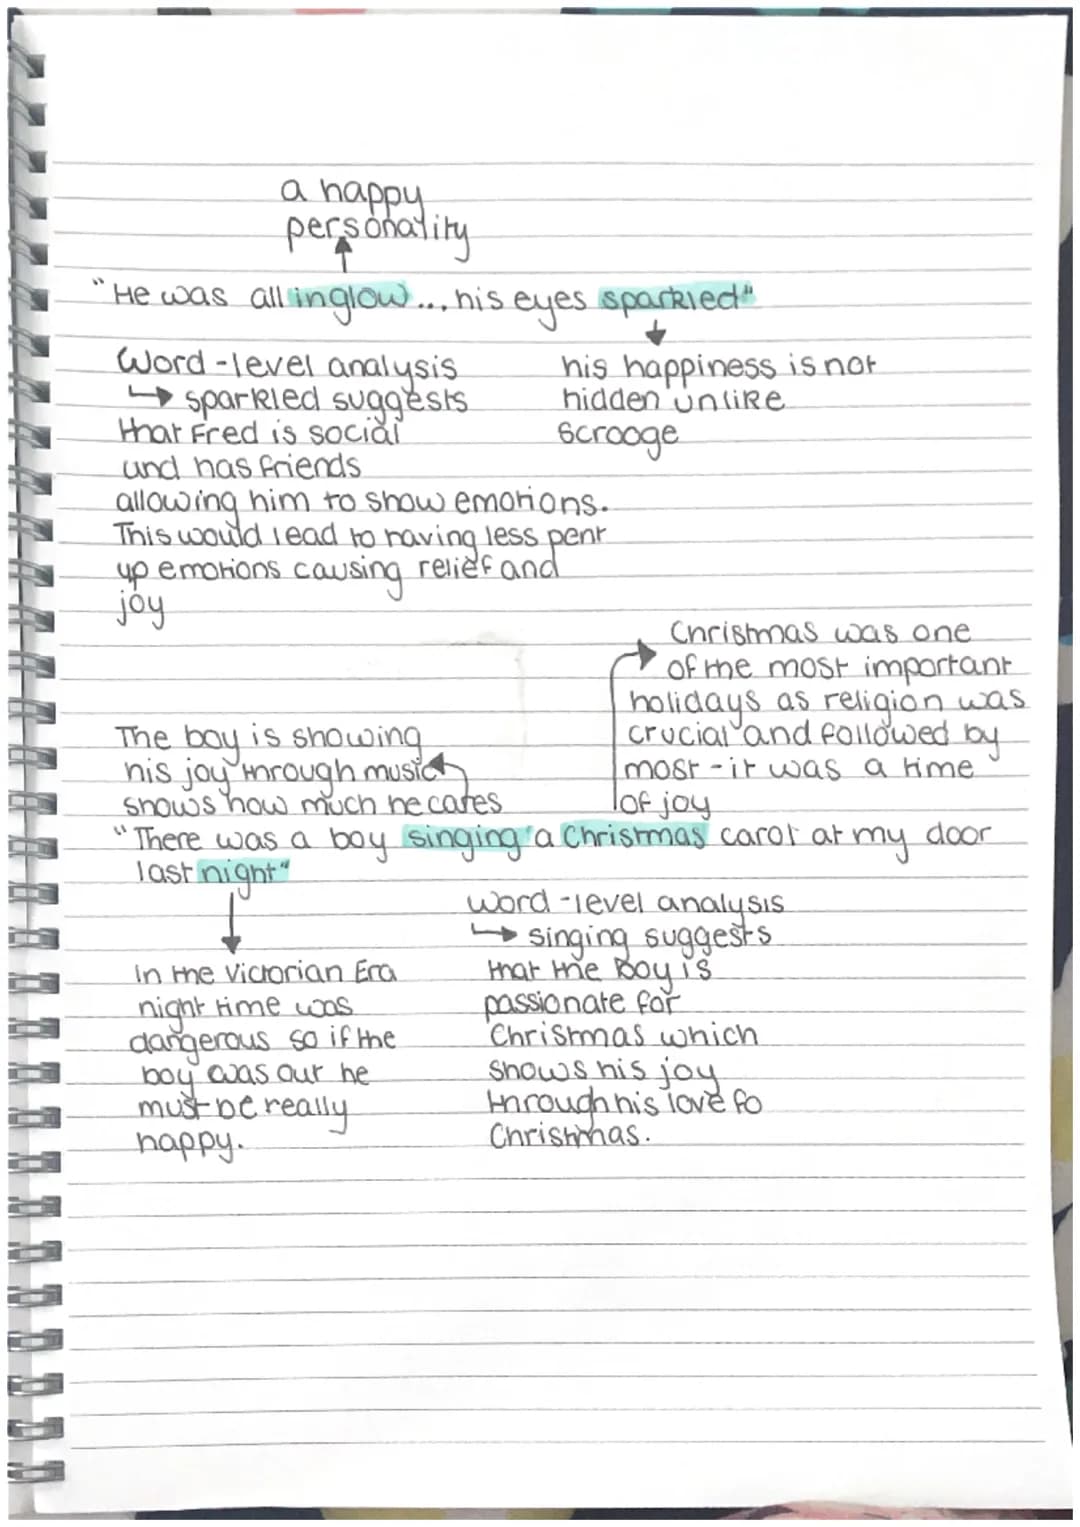 a happy
personality
"He was all inglow... his eyes sparkled"
Word-level analysis
↳ sparkled suggests
that Fred is social
and has friends
allowing him to show emotions.
This would lead to having less pent
up emotions causing relief and
joy
his happiness is not
hidden unlike
Scrooge
Christmas was one
of the most important
holidays as religion was
crucial and followed by
most - it was a time
of joy
The boy is showing
his joy through music
shows how much he cares
"There was a boy singing a Christmas carol at my door
last night"
In the Victorian Era
night time was
dangerous so if the
boy was out he
must be really
happy.
Word-level analysis
↳ singing suggests
that the boy is
passionate for
Christmas which
shows his joy
through his love fo
Christmas.